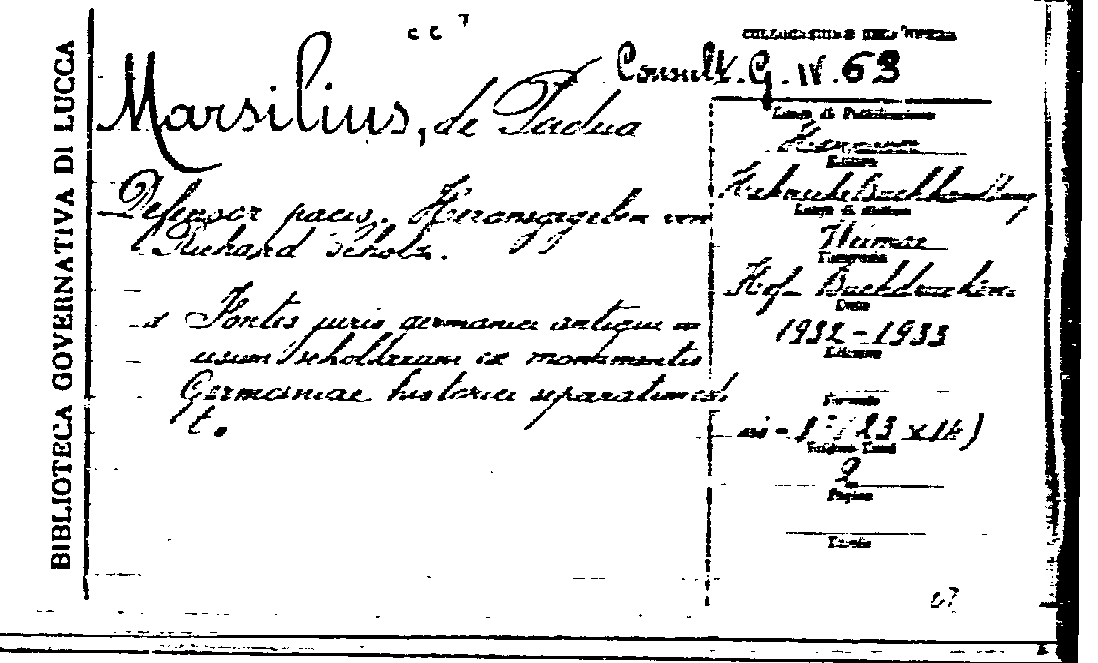 BIBLIOTECA GOVERNATIVA DI LUCCA
COLLOCAZIONE DELL'OPERA
Consult. G. IV. 63
Marsilius, de Padua
Defensor pacis. Herausgegeben von
Richard Scholz.
Fontes juris germanici antiqui in
usum scholarum ex monumentis
Germaniae historicis separatim edi
t.
Luogo di Pubblicazione
Hannover
Editore
Hahnsche Buchhandlung
Luogo di stampa
Weimar
Tipografia
Hof- Buchdruckerei
Data
1932-1933
Edizione
Formato
Volumi
2
Pagine
Tavole